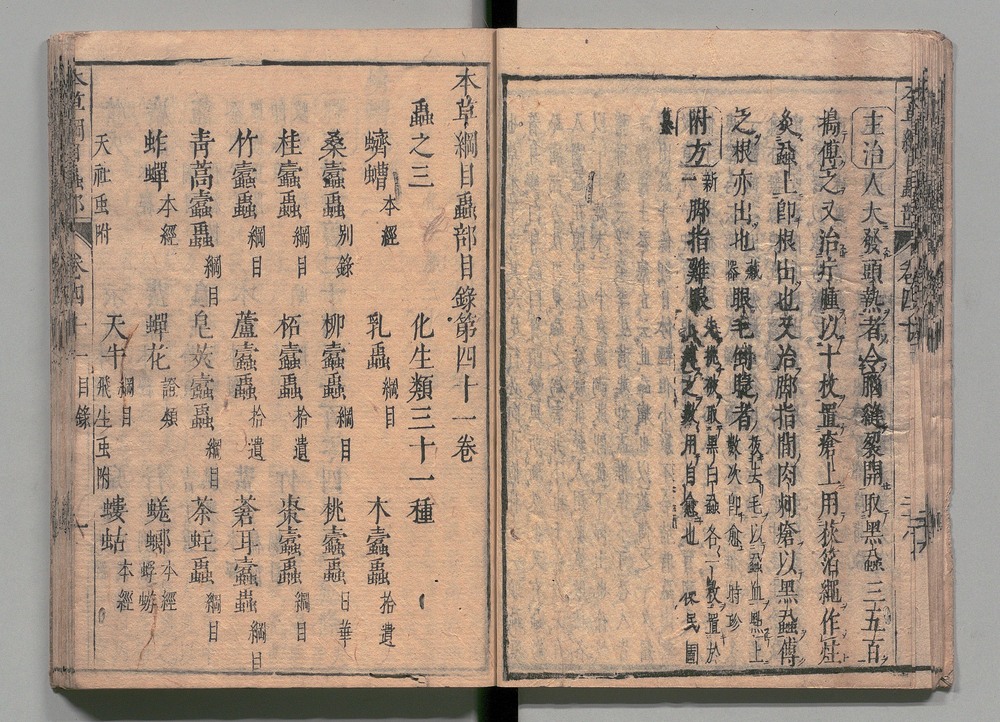 主治人大發頭熱者令腦縫裂開取黑蝨三五百
搗傅之又治疔腫以十枚置瘡上用荻箔繩作炷
灸蝨上卽根出也又治脚指間肉刺瘡以黑蝨傅
之根亦出也藏器眼毛倒睫者拔去毛以蝨血點上數次卽愈時珍
附方新一脚指雞眼先挑破取黑白蝨各一枚置於 數用自愈也 便民圖
纂
本草綱目蟲部目錄第四十一卷
蟲之三 化生類三十一種
蠐螬本經 乳蟲綱目 木蠹蟲拾遺
桑蠹蟲別錄 柳蠹蟲綱目 桃蠹蟲日華
桂蠹蟲綱目 柘蠹蟲拾遺 棗蠹蟲綱目
竹蠹蟲綱目 蘆蠹蟲拾遺 蒼耳蠹蟲綱目
青蒿蠹蟲綱目 皂莢蠹蟲綱目 茶蛀蟲綱目
蚱蟬本經 蟬花證類 蜣螂本經 蜉蝣
天社虫附 天牛綱目 飛生虫附 螻蛄本經
本草綱目蟲部 卷四十一 目錄